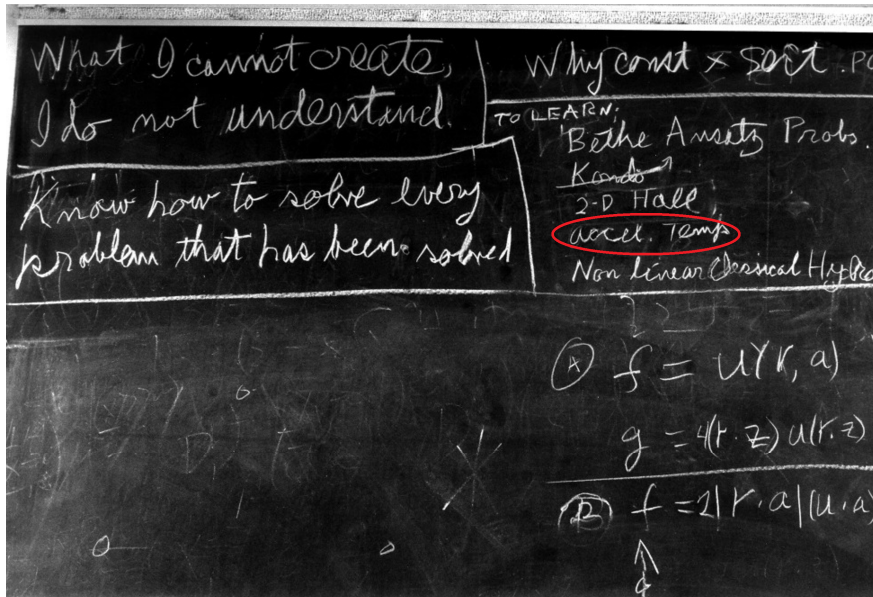 What I cannot create,
I do not understand.
Know how to solve every
problem that has been solved
Why const × sort . PO
TO LEARN:
Bethe Ansatz Probs.
Kondo
2-D Hall
accel. Temp
Non linear Classical Hydro
Ⓐ f = u(r, a)
g = 4(r·z) u(r,z)
Ⓑ f = 2|r·a|(u·a)